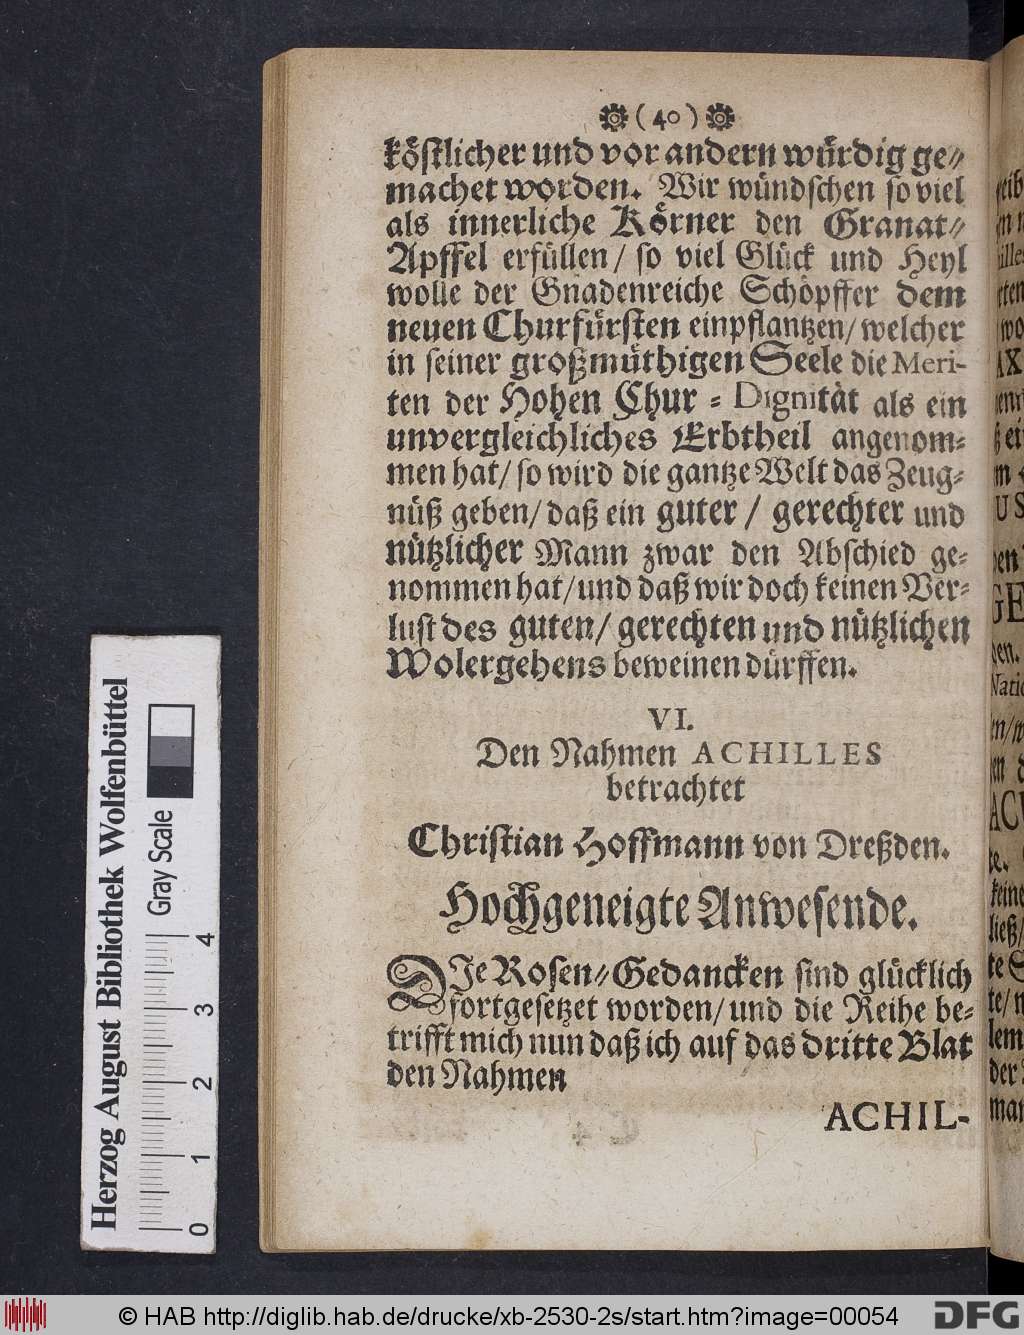 ❁ ( 40 ) ❁
köstlicher und vor andern würdig ge⸗
machet worden. Wir wündschen so viel
als innerliche Körner den Granat⸗
Apffel erfüllen / so viel Glück und Heyl
wolle der Gnadenreiche Schöpffer dem
neuen Churfürsten einpflantzen / welcher
in seiner großmüthigen Seele die Meri-
ten der Hohen Chur⸗Dignität als ein
unvergleichliches Erbtheil angenom⸗
men hat / so wird die gantze Welt das Zeug⸗
nüß geben / daß ein guter / gerechter und
nützlicher Mann zwar den Abschied ge⸗
nommen hat / und daß wir doch keinen Ver⸗
lust des guten / gerechten und nützlichen
Wolergehens beweinen dürffen.
VI.
Den Nahmen ACHILLES
betrachtet
Christian Hoffmann von Dreßden.
Hochgeneigte Anwesende.
DIe Rosen⸗Gedancken sind glücklich
fortgesetzet worden / und die Reihe be⸗
trifft mich nun daß ich auf das dritte Blat
den Nahmen
ACHIL-
Herzog August Bibliothek Wolfenbüttel
Gray Scale
0 1 2 3 4
© HAB http://diglib.hab.de/drucke/xb-2530-2s/start.htm?image=00054
diglib
DFG